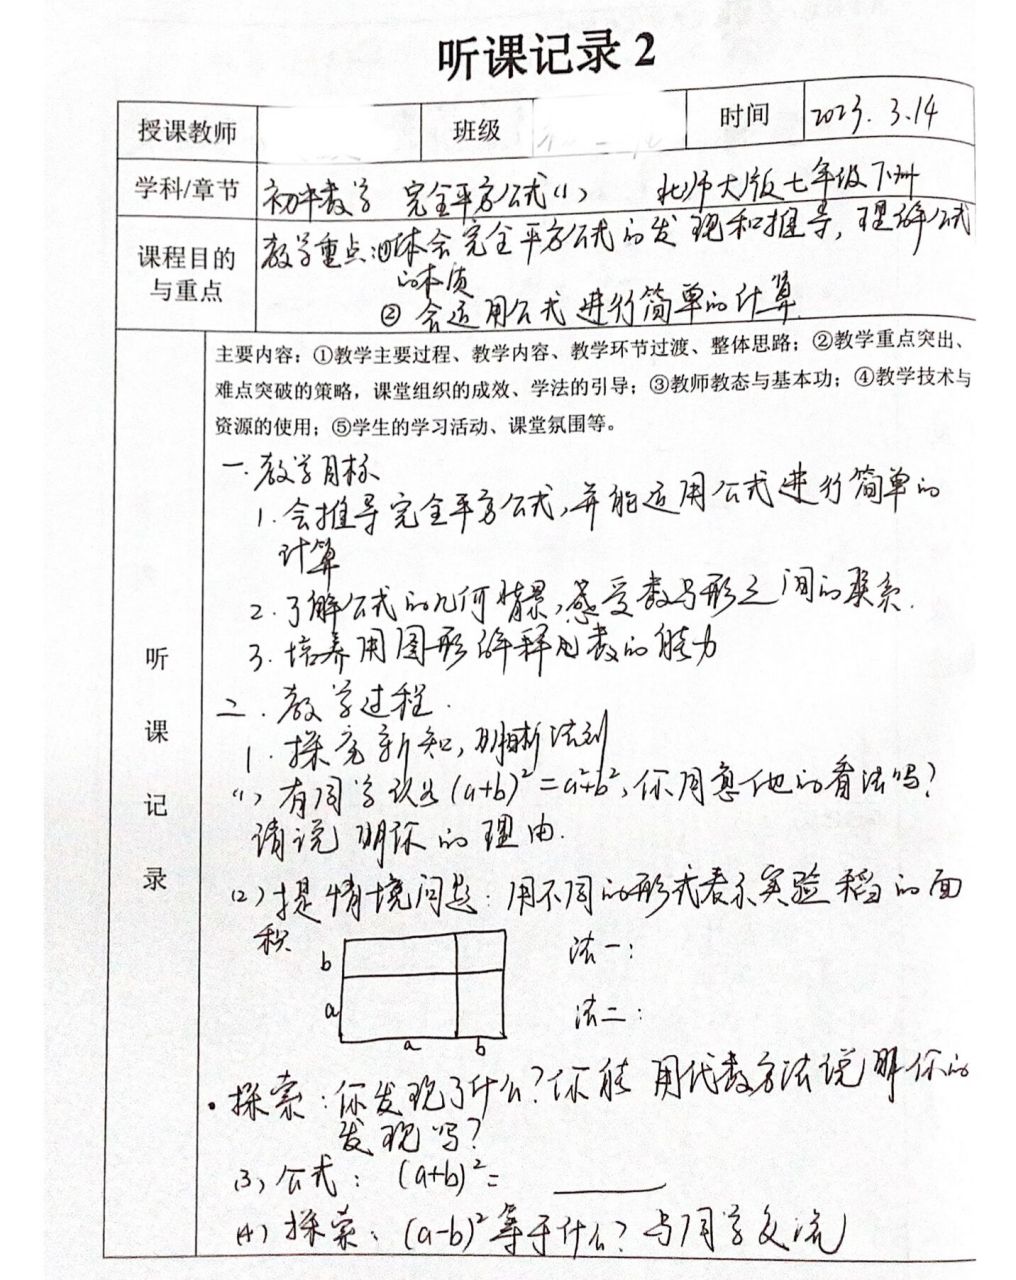 听课记录 2
授课教师 班级 时间 2023. 3.14
学科/章节 初中数学 完全平方公式(1) 北师大版七年级下册
课程目的与重点
教学重点:①体会完全平方公式的发现和推导,理解公式
的本质
②会运用公式进行简单的计算.
主要内容:①教学主要过程、教学内容、教学环节过渡、整体思路;②教学重点突出、
难点突破的策略,课堂组织的成效、学法的引导;③教师教态与基本功;④教学技术与
资源的使用;⑤学生的学习活动、课堂氛围等。
听课记录
一.教学目标
1.会推导完全平方公式,并能运用公式进行简单的
计算
2.了解公式的几何背景,感受数与形之间的联系.
3.培养用图形解释代数的能力
二.教学过程.
1.探究新知,明晰法则
(1)有同学认为(a+b)²=a²+b²,你同意他的看法吗?
请说明你的理由.
(2)提情境问题:用不同的形式表示实验稻的面
积
b 法一:
a 法二:
a b
·探索:你发现了什么?你能用代数方法说明你的
发现吗?
(3)公式:(a+b)²= ______
(4)探索:(a-b)²等于什么?与同学交流